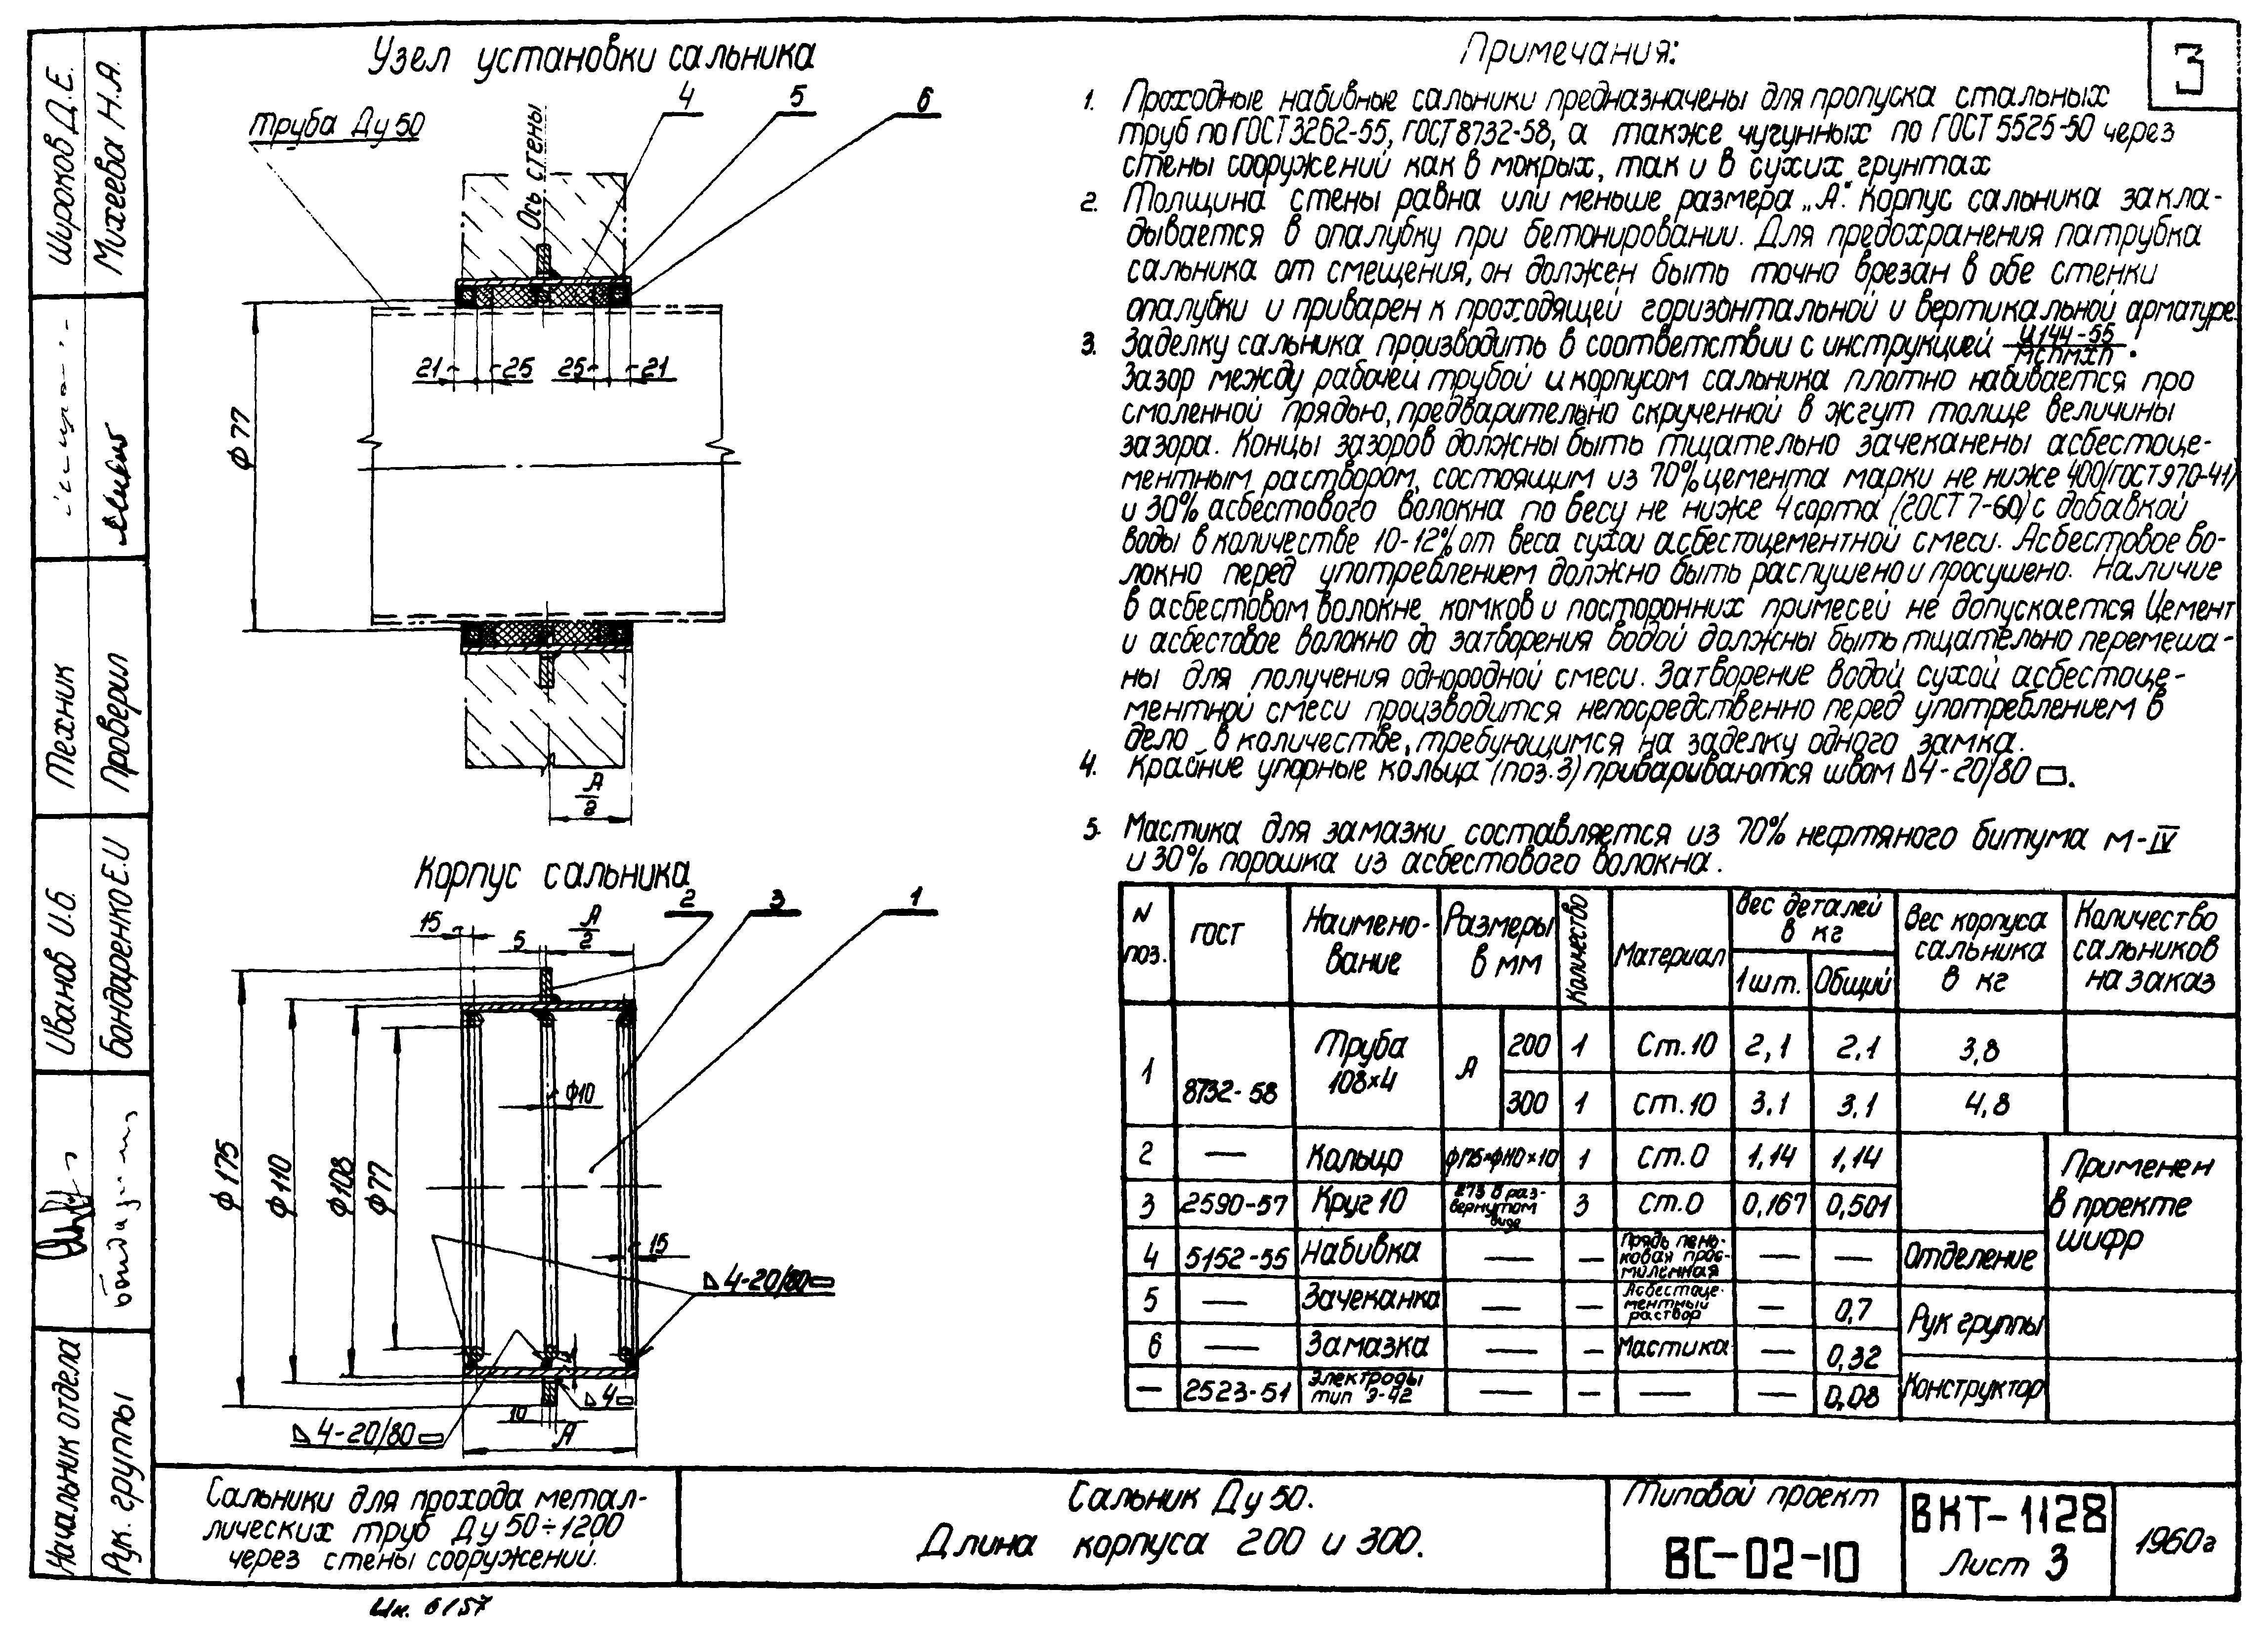 3
Узел установки сальника
Труба Ду 50
Ось стены
4
5
6
21
25
25
21
ф77
А
2
Корпус сальника
2
3
1
15
5
А
2
ф10
ф175
ф110
ф108
ф77
15
4-20/80
4
10
4-20/80
А
Примечания:
1. Проходные набивные сальники предназначены для пропуска стальных
труб по ГОСТ 3262-55, ГОСТ 8732-58, а также чугунных по ГОСТ 5525-50 через
стены сооружений как в мокрых, так и в сухих грунтах
2. Толщина стены равна или меньше размера „А". Корпус сальника закла-
дывается в опалубку при бетонировании. Для предохранения патрубка
сальника от смещения, он должен быть точно врезан в обе стенки
опалубки и приварен к проходящей горизонтальной и вертикальной арматуре.
3. Заделку сальника производить в соответствии с инструкцией И144-55
МСПМХП
Зазор между рабочей трубой и корпусом сальника плотно набивается про
смоленной прядью, предварительно скрученной в жгут толще величины
зазора. Концы зазоров должны быть тщательно зачеканены асбестоце-
ментным раствором, состоящим из 70% цемента марки не ниже 400 (ГОСТ 970-41)
и 30% асбестового волокна по весу не ниже 4 сорта (ГОСТ 7-60) с добавкой
воды в количестве 10-12% от веса сухой асбестоцементной смеси. Асбестовое во-
локно перед употреблением должно быть распушено и просушено. Наличие
в асбестовом волокне комков и посторонних примесей не допускается Цемент
и асбестовое волокно до затворения водой должны быть тщательно перемеша-
ны для получения однородной смеси. Затворение водой сухой асбестоце-
ментной смеси производится непосредственно перед употреблением в
дело в количестве, требующимся на заделку одного замка.
4. Крайние упорные кольца (поз. 3) привариваются швом 4-20/80.
5. Мастика для замазки составляется из 70% нефтяного битума М-IV
и 30% порошка из асбестового волокна.
N поз. ГОСТ Наимено-вание Размеры в мм Количество Материал Вес деталей в кг 1 шт. Общий Вес корпуса сальника в кг Количество сальников на заказ
1 8732-58 Труба 108×4 А 200 1 Ст.10 2,1 2,1 3,8
300 1 Ст.10 3.1 3,1 4,8
2 — Кольцо ф175×ф110×10 1 Ст.0 1,14 1,14
3 2590-57 Круг 10 273 в раз-вернутом виде 3 Ст.0 0,167 0,501
4 5152-55 Набивка — — Прядь пень-ковая прос-моленная — —
5 — Зачеканка — — Асбестоце-ментный раствор — 0,7
6 — Замазка — — Мастика — 0,32
— 2523-51 Электроды тип Э-42 — — — — 0,08
Применен
в проекте
шифр
Отделение
Рук группы
Конструктор
Широков Д.Е.
Михеева Н.А.
Техник
Проверил
Иванов И.Б.
Бондаренко Е.И
Начальник отдела
Рук. группы
Сальники для прохода метал-
лических труб Ду 50÷1200
через стены сооружений.
Сальник Ду 50.
Длина корпуса 200 и 300.
Типовой проект
ВС-02-10
ВКТ-1128
Лист 3
1960г